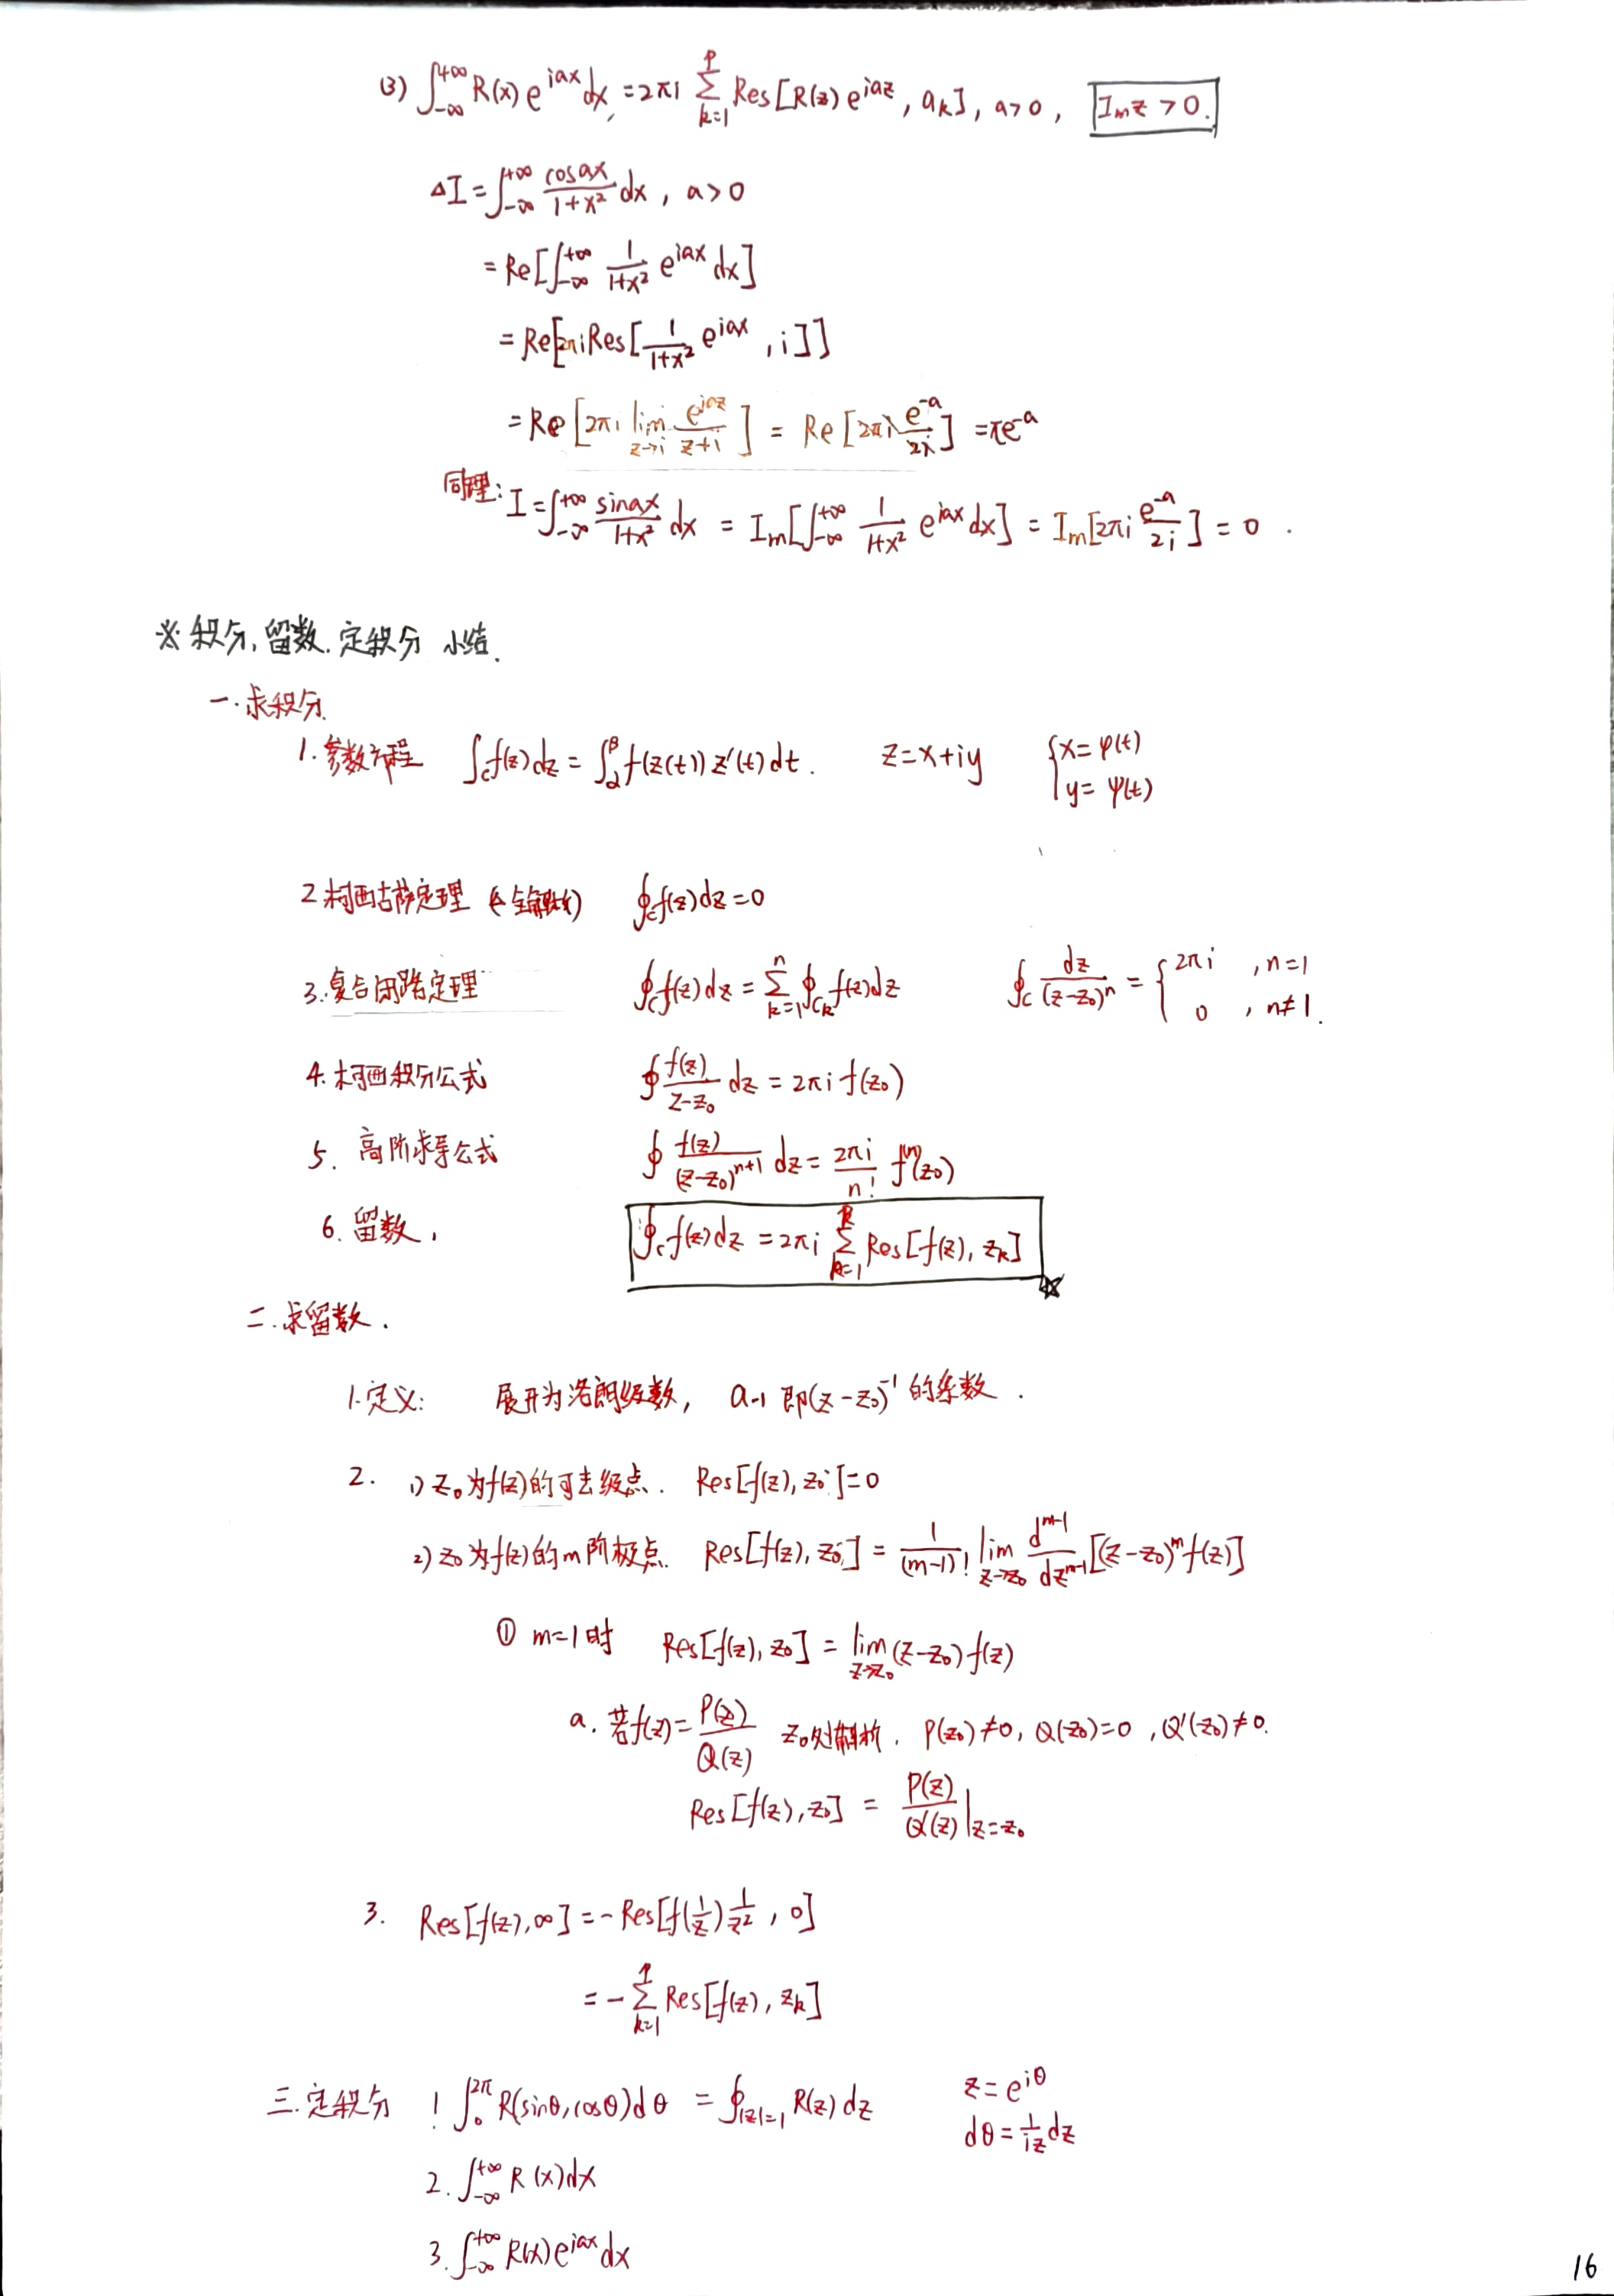 (3) ∫_{-∞}^{+∞} R(x) e^{iax} dx = 2πi ∑_{k=1}^{p} Res[R(z) e^{iaz}, a_k], a>0, Im z > 0.
△I = ∫_{-∞}^{+∞} \frac{cos ax}{1+x²} dx, a>0
= Re[∫_{-∞}^{+∞} \frac{1}{1+x²} e^{iax} dx]
= Re[2πi Res[\frac{1}{1+x²} e^{iax}, i]]
= Re[2πi \lim_{z→i} \frac{e^{iaz}}{z+i}] = Re[2πi \frac{e^{-a}}{2i}] = πe^{-a}
同理: I = ∫_{-∞}^{+∞} \frac{sin ax}{1+x²} dx = Im[∫_{-∞}^{+∞} \frac{1}{1+x²} e^{iax} dx] = Im[2πi \frac{e^{-a}}{2i}] = 0.
※ 积分, 留数. 定积分 小结.
一. 求积分.
1. 参数方程 ∫_C f(z)dz = ∫_α^β f(z(t)) z'(t) dt. z=x+iy {x=φ(t) y=ψ(t)
2 柯西古萨定理 ∮_C f(z)dz=0
3. 复合闭路定理 ∮_C f(z)dz = ∑_{k=1}^{n} ∮_{C_k} f(z)dz ∮_C \frac{dz}{(z-z₀)^n} = {2πi, n=1 0, n≠1.
4. 柯西积分公式 ∮ \frac{f(z)}{z-z₀} dz = 2πi f(z₀)
5. 高阶求导公式 ∮ \frac{f(z)}{(z-z₀)^{n+1}} dz = \frac{2πi}{n!} f^{(n)}(z₀)
6. 留数, ∮_C f(z)dz = 2πi ∑_{k=1}^{k} Res[f(z), z_k] ☆
二. 求留数.
1. 定义: 展开为洛朗级数, a_{-1} 即(z-z₀)^{-1} 的系数.
2. 1) z₀为f(z)的可去级点. Res[f(z), z₀]=0
2) z₀为f(z)的m阶极点. Res[f(z), z₀] = \frac{1}{(m-1)!} \lim_{z→z₀} \frac{d^{m-1}}{dz^{m-1}} [(z-z₀)^m f(z)]
① m=1时 Res[f(z), z₀] = \lim_{z→z₀} (z-z₀) f(z)
a. 若f(z) = \frac{P(z)}{Q(z)} z₀处解析. P(z₀)≠0, Q(z₀)=0, Q'(z₀)≠0.
Res[f(z), z₀] = \frac{P(z)}{Q'(z)} |_{z=z₀}
3. Res[f(z), ∞] = -Res[f(\frac{1}{z}) \frac{1}{z²}, 0]
= -∑_{k=1}^{p} Res[f(z), z_k]
三. 定积分 1 ∫_0^{2π} R(sinθ, cosθ)dθ = ∮_{|z|=1} R(z)dz z=e^{iθ}
dθ = \frac{1}{iz} dz
2. ∫_{-∞}^{+∞} R(x)dx
3. ∫_{-∞}^{+∞} R(x) e^{iax} dx
16